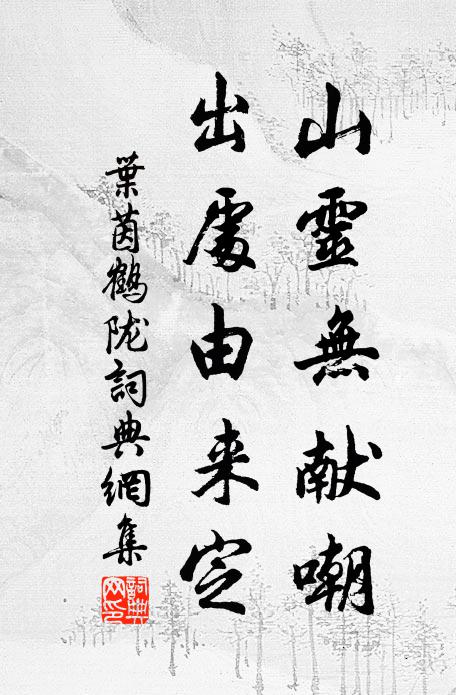 山靈無献嘲
出處由来定
葉茵鶴陇詞典網集
詞典網印